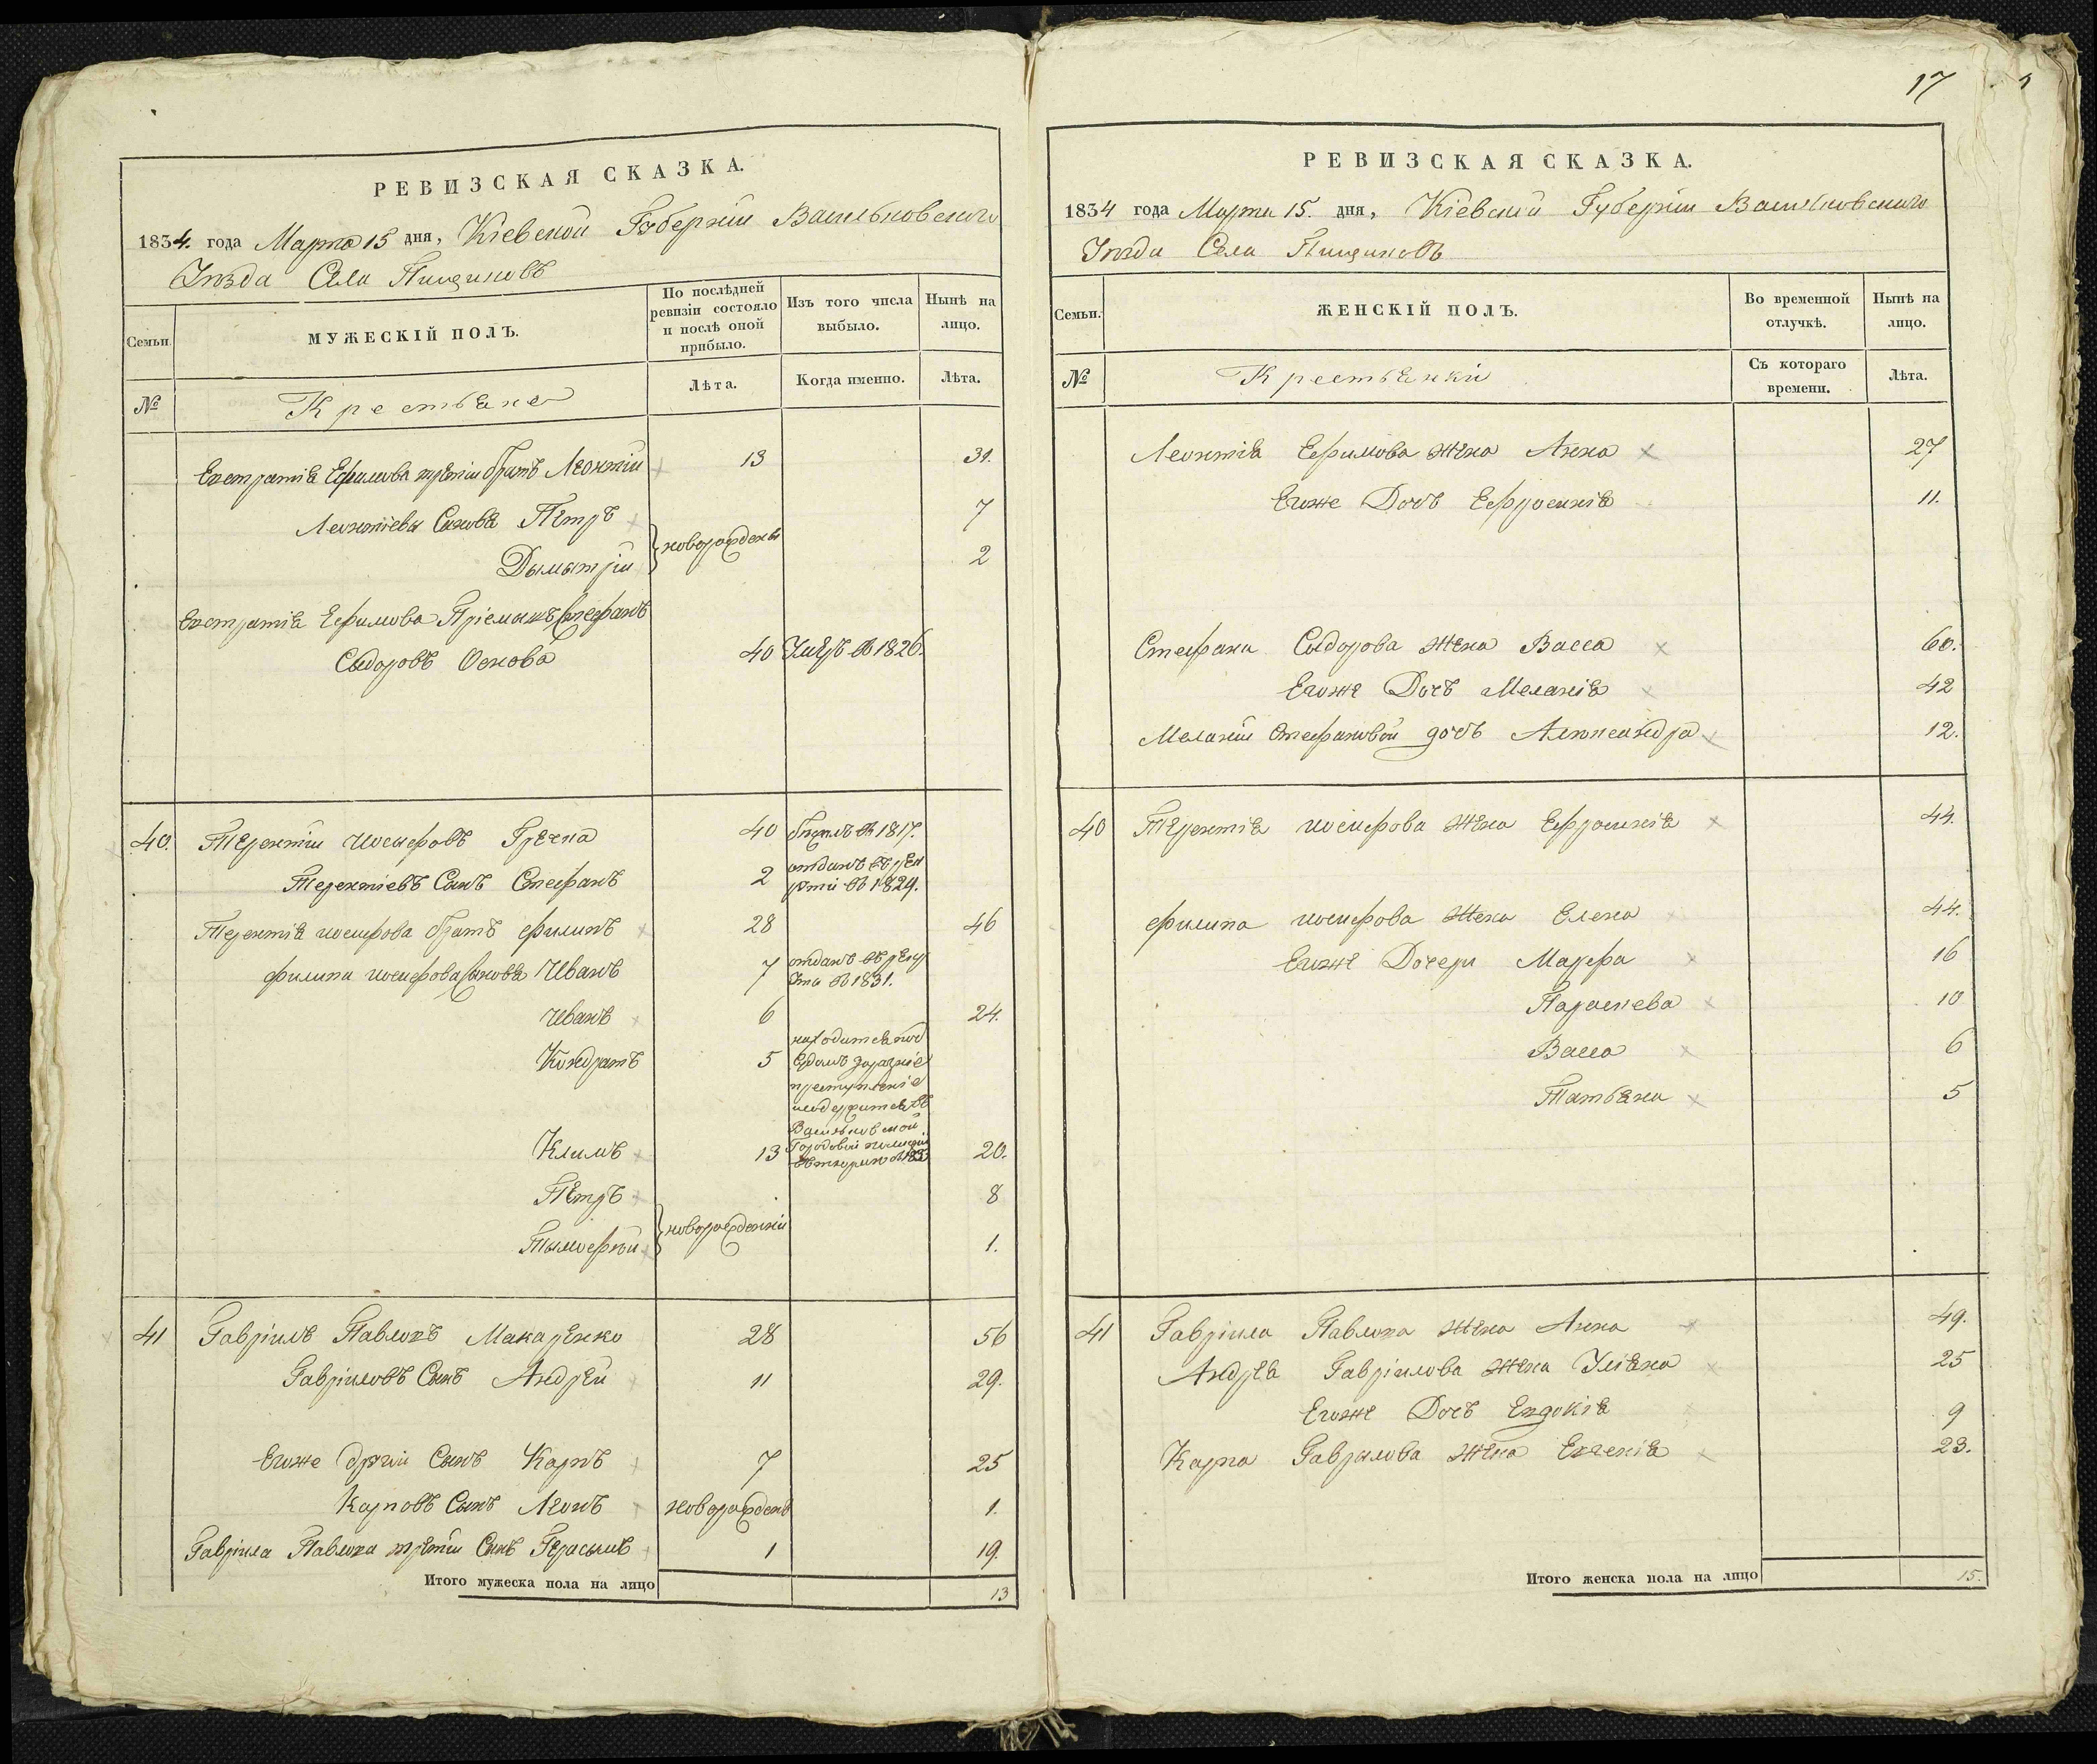 РЕВИЗСКАЯ СКАЗКА.
1834. года Марта 15 дня, Кіевской Губерніи Васильковского
Уѣзда Села Пищиковъ
Семьи.
МУЖЕСКІЙ ПОЛЪ.
По послѣдней ревизіи состояло и послѣ оной прибыло.
Изъ того числа выбыло.
Нынѣ на лицо.
№
Крестьяне
Лѣта.
Когда именно.
Лѣта.
Евстратія Ефимова третій братъ Леонтій 13 31.
Леонтіевы Сыновя Петръ 7
новорожденны
Дымытрій 2
Евстратія Ефимова Пріемышъ Стефанъ
Сыдоровъ 40 Умеръ въ 1826.
40. Терентій иосифовъ Гречка 40 въ 1817.
Терентіевъ Сынъ Стефанъ 2 отданъ въ рек
руты въ 1829.
Терентія иосифова братъ филипъ 28 46
филипа иосифова Сыновя Иванъ 7 отданъ въ рекр
ута въ 1831.
Иванъ 6 24.
Кондратъ 5 находится подъ
Судомъ за разніе
преступленіе
и содержится въ
Васильковской
Городовой полиціи
Климъ 13 20.
Петръ 8
новорожденніи
Тымофѣй 1.
41 Гавріилъ Павловъ Макаренко 28 56
Гавріиловъ Сынъ Андрей 11 29.
Егоже другій Сынъ Карпъ 7 25
Карповъ Сынъ Леонъ новорожденъ 1.
Гавріила Павлова третій Сынъ Герасымъ 1 19.
Итого мужеска пола на лицо 13
17
РЕВИЗСКАЯ СКАЗКА.
1834 года Марта 15. дня, Кіевской Губерніи Васильковского
Уѣзда Села Пищиковъ
Семьи.
ЖЕНСКІЙ ПОЛЪ.
Во временной отлучкѣ.
Нынѣ на лицо.
№
Крестьянки
Съ котораго времени.
Лѣта.
Леонтія Ефимова жена Анна 27
Егоже Дочь Ефросинія 11.
Стефана Сыдорова жена Васса 60.
Егоже Дочь Меланія 42
Меланіи Стефановой дочь Александра 12.
40 Терентія иосифова жена Ефросинія 44.
филипа иосифова жена Елена 44.
Егоже Дочери Марфа 16
Параскева 10
Васса 6
Татьяна 5
41 Гавріила Павлова жена Анна 49.
Андрея Гавріилова жена Уліяна 25
Егоже Дочь Евдокія 9
Карпа Гаврылова жена Евгенія 23.
Итого женска пола на лицо 15.